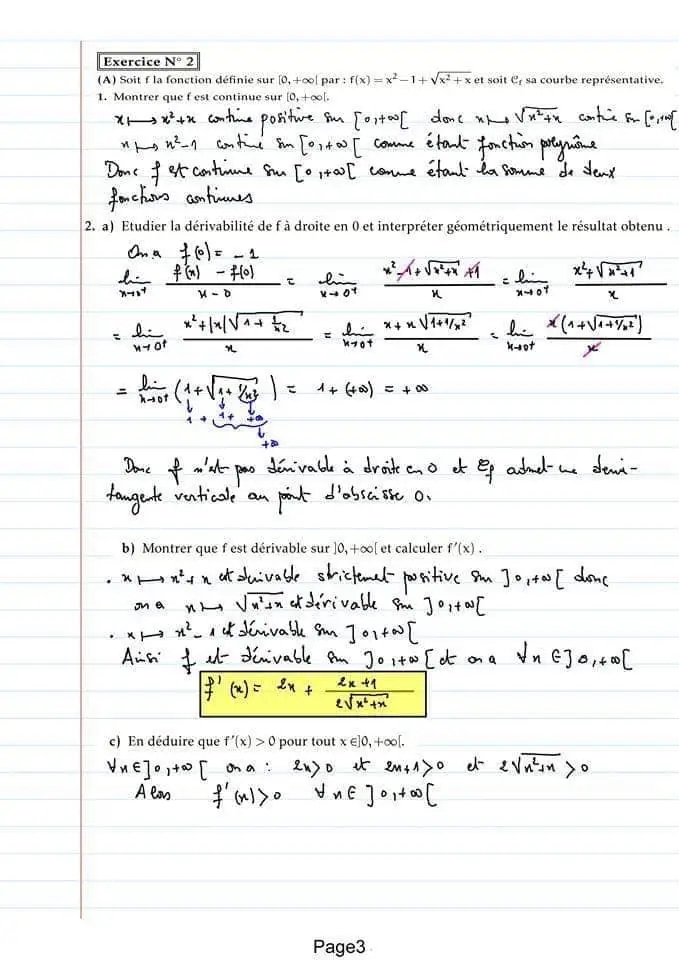 Exercice N° 2
(A) Soit f la fonction définie sur [0,+∞[ par : f(x) = x² − 1 + √(x² + x) et soit 𝒞f sa courbe représentative.
1. Montrer que f est continue sur [0,+∞[.
x ⟼ x²+x continue positive sur [0,+∞[ donc x ⟼ √(x²+x) continue sur [0,+∞[
x ⟼ x²-1 continue sur [0,+∞[ comme étant fonction polynôme
Donc f est continue sur [0,+∞[ comme étant la somme de deux
fonctions continues
2. a) Etudier la dérivabilité de f à droite en 0 et interpréter géométriquement le résultat obtenu .
On a f(0) = -1
lim x→0⁺ (f(x) - f(0))/(x - 0) = lim x→0⁺ (x² - 1 + √(x²+x) + 1)/x = lim x→0⁺ (x² + √(x²+1))/x
= lim x→0⁺ (x² + |x|√(1 + 1/x²))/x = lim x→0⁺ (x + x√(1+1/x²))/x = lim x→0⁺ x(1+√(1+1/x²))/x
= lim x→0⁺ (1+√(1+1/x²)) = 1 + (+∞) = +∞
1 + 1 + +∞
+∞
Donc f n'est pas dérivable à droite en 0 et 𝒞f admet une demi-
tangente verticale au point d'abscisse 0.
b) Montrer que f est dérivable sur ]0,+∞[ et calculer f′(x) .
. x ⟼ x²+x est dérivable strictement positive sur ]0,+∞[ donc
on a x ⟼ √(x²+x) est dérivable sur ]0,+∞[
. x ⟼ x²-1 est dérivable sur ]0,+∞[
Ainsi f est dérivable sur ]0,+∞[ et on a ∀x∈]0,+∞[
f'(x) = 2x + (2x+1)/(2√(x²+x))
c) En déduire que f′(x) > 0 pour tout x ∈]0,+∞[.
∀x∈]0,+∞[ on a : 2x>0 et 2x+1>0 et 2√(x²+x) >0
Alors f'(x)>0 ∀x∈]0,+∞[
Page3